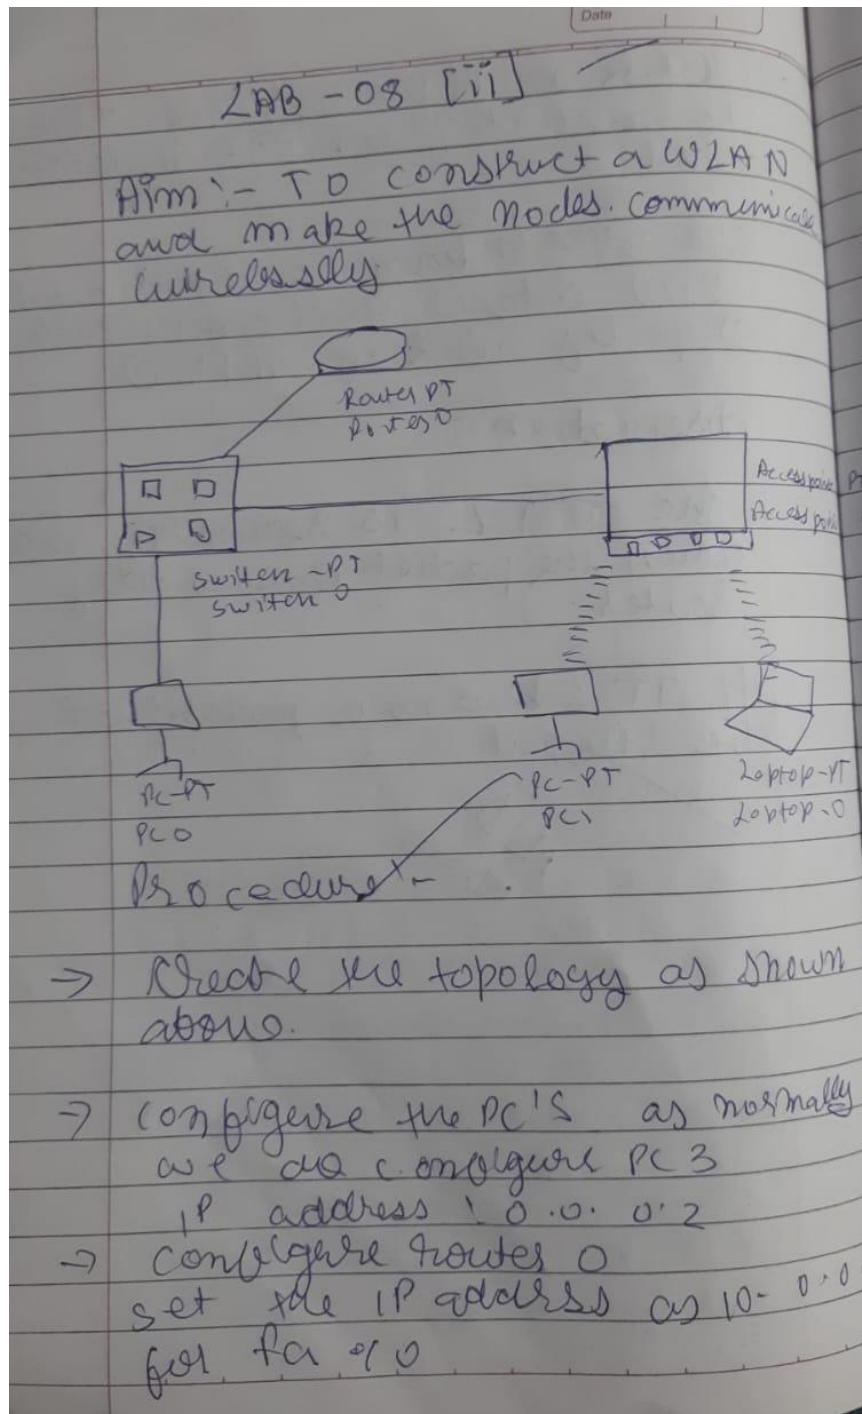 Date
LAB - 08 [ii]
Aim :- To construct a WLAN
and make the nodes. communicate
wirelessly
Router PT
Router 0
Accesspoint PT
Access point
Switch - PT
Switch 0
PC-PT
PC 0
PC-PT
PC1
Laptop-PT
Laptop-0
Procedure :-
→ Create the topology as shown
above.
→ Configure the PC'S as normally
we do configure PC 3
IP address : 0.0.0.2
→ Configure router 0
set the IP address as 10.0.0
for fa 0/0